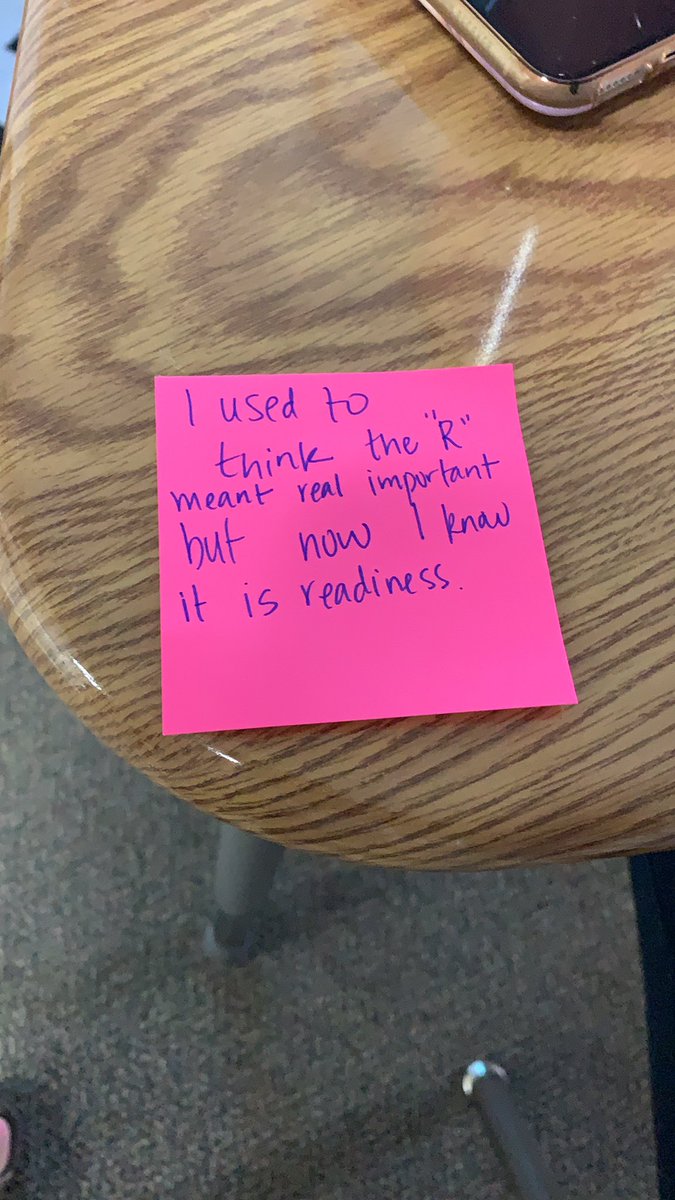 I used to
think the "R"
meant real important
but now I know
it is readiness.